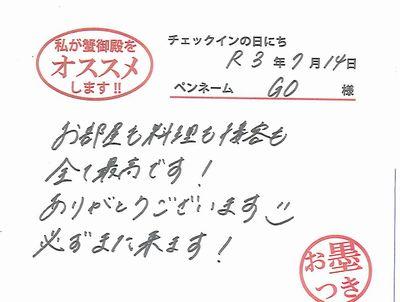 私が蟹御殿を
オススメ
します!!
チェックインの日にち
R3年7月14日
ペンネーム GO 様
お部屋も料理も接客も
全て最高です!
ありがとうございます
必ずまた来ます!
お墨つき